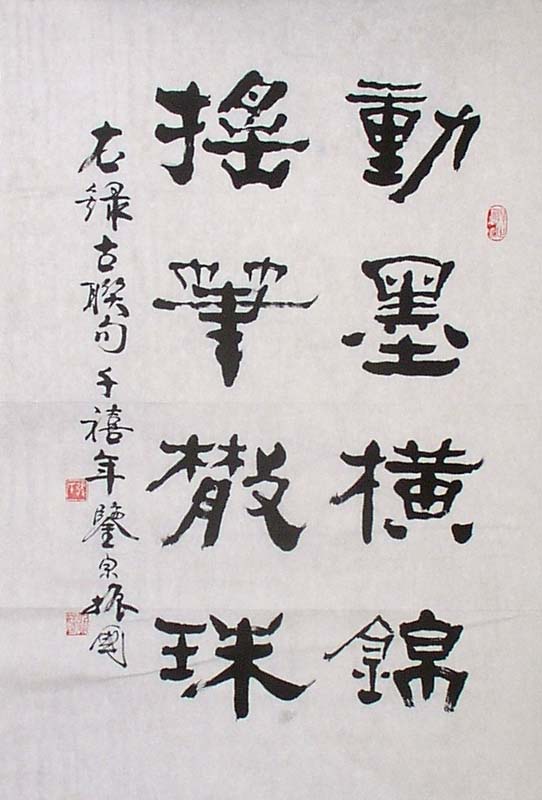 動墨橫錦
搖筆散珠
右録古聯句千禧年鑒泉振國